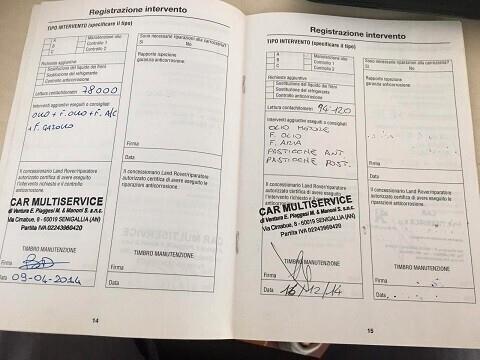 Registrazione intervento
TIPO INTERVENTO (specificare il tipo)
A
B
C
Manutenzione olio
Controllo 1
Controllo 2
Richieste aggiuntive
Sostituzione del liquido dei freni
Sostituzione del refrigerante
Controllo anticorrosione
Lettura contachilometri 78000
Interventi aggiuntivi eseguiti o consigliati
OLIO + F. OLIO + F. A/C
+ F. GASOLIO
Il concessionario Land Rover/riparatore
autorizzato certifica di avere eseguito
l'intervento richiesto e il controllo
anticorrosione.
CAR MULTISERVICE
di Ventura E. Piaggesi M. & Manoni S. s.n.c.
Via Cimabue, 8 - 60019 SENIGALLIA (AN)
Partita IVA 02243960420
TIMBRO MANUTENZIONE
Firma
Data 09-04-2014
Sono necessarie riparazioni alla carrozzeria?
Si No
Rapporto ispezione
garanzia anticorrosione.
Firma
Data
Il concessionario Land Rover/riparatore
autorizzato certifica di avere
eseguito le
riparazioni anticorrosione.
TIMBRO MANUTENZIONE
Firma
Data
14
Registrazione intervento
TIPO INTERVENTO (specificare il tipo)
A
B
C
Manutenzione olio
Controllo 1
Controllo 2
Richieste aggiuntive
Sostituzione del liquido dei freni
Sostituzione del refrigerante
Controllo anticorrosione
Lettura contachilometri 94.120
Interventi aggiuntivi eseguiti o consigliati
OLIO MOTORE
F. OLIO
F. ARIA
PASTICCHE ANT.
PASTICCHE POST.
Il concessionario Land Rover/riparatore
autorizzato certifica di avere eseguito
l'intervento richiesto e il controllo
anticorrosione.
CAR MULTISERVICE
di Ventura E. Piaggesi M. & Manoni S. s.n.c.
Via Cimabue, 8 - 60019 SENIGALLIA (AN)
Partita IVA 02243960420
TIMBRO MANUTENZIONE
Firma
Data 16/12/14
Sono necessarie riparazioni alla carrozzeria?
Si No
Rapporto ispezione
garanzia anticorrosione.
Firma
Data
Il concessionario Land Rover/riparatore
autorizzato certifica di avere eseguito le
riparazioni anticorrosione.
TIMBRO MANUTENZIONE
Firma
Data
15